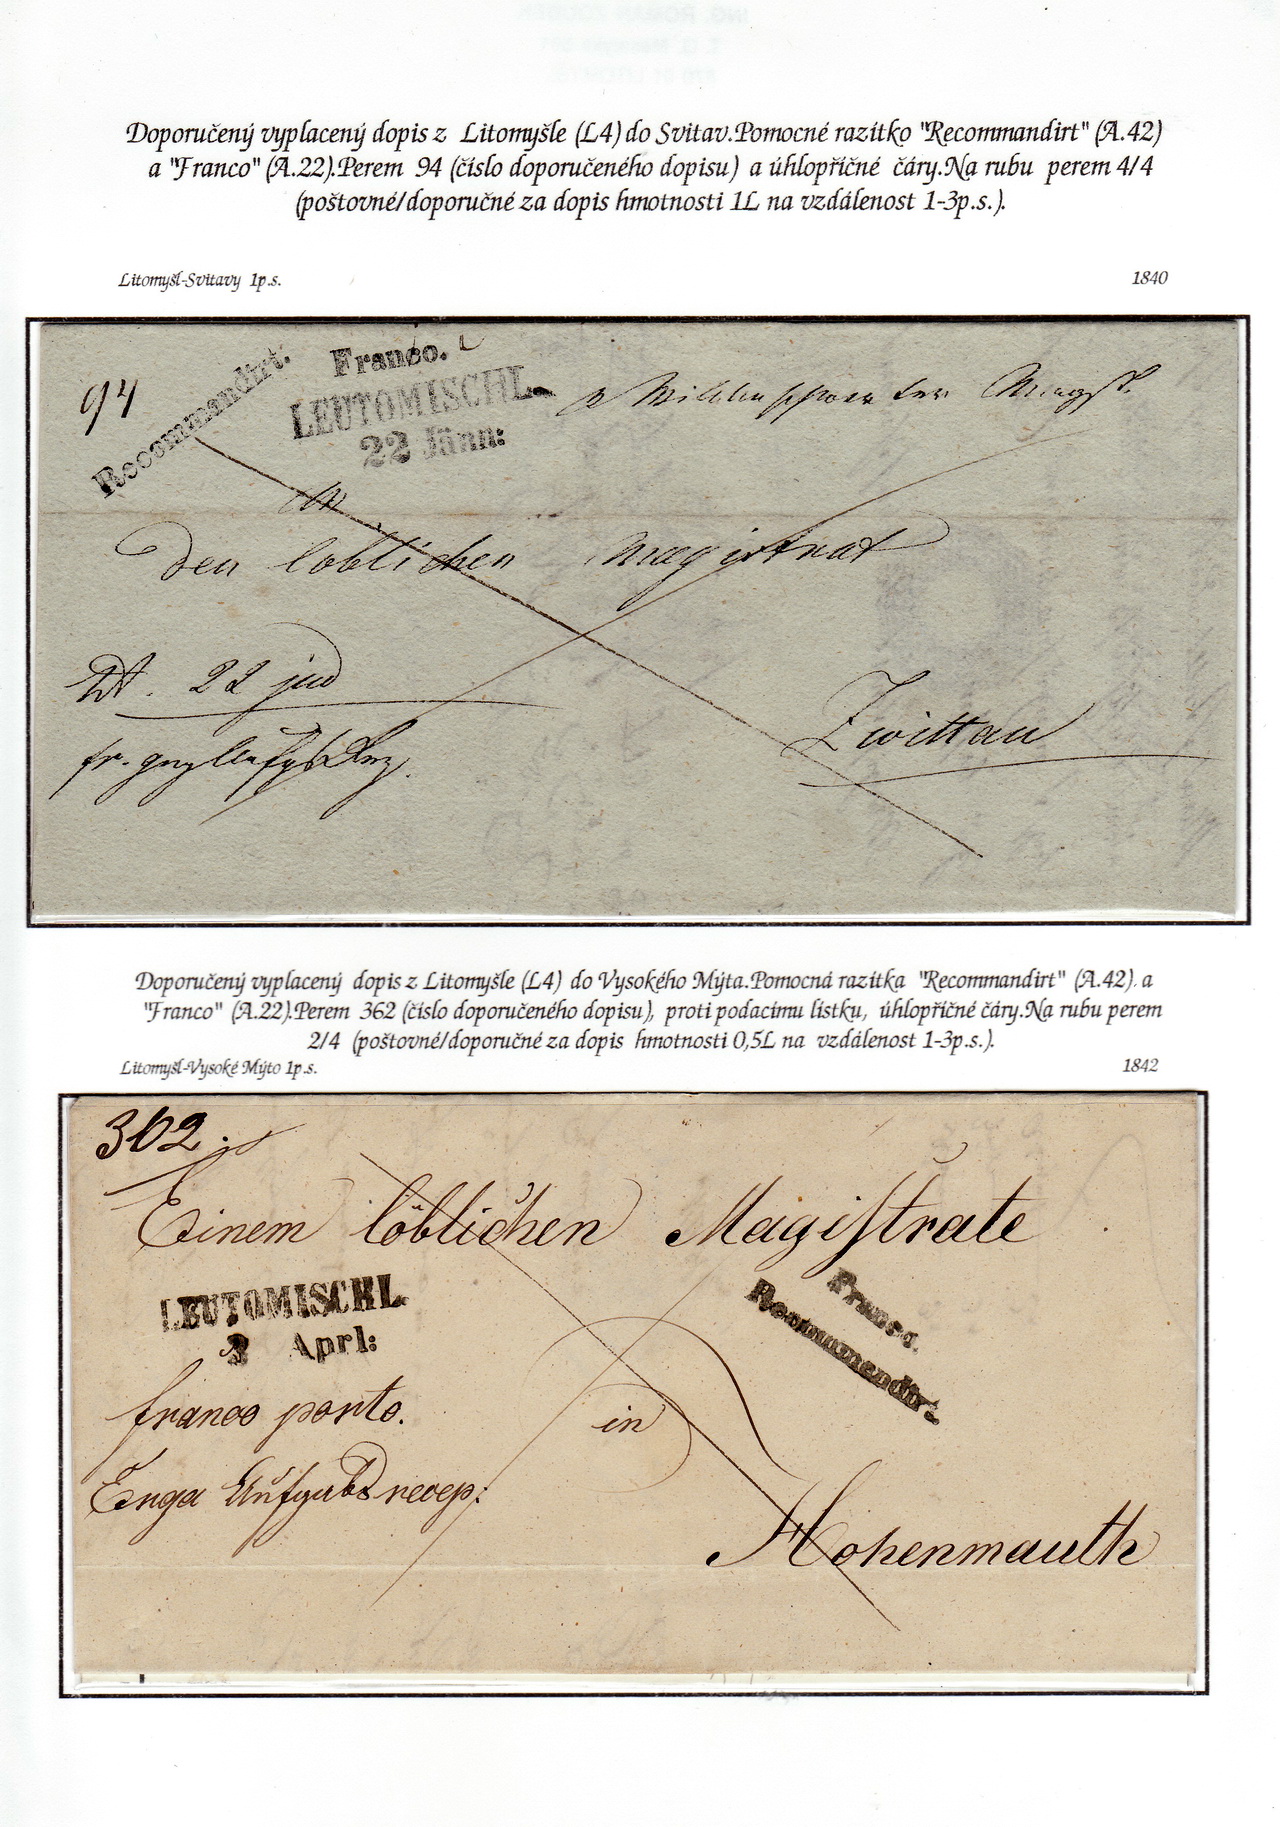 Doporučený vyplacený dopis z Litomyšle (L4) do Svitav.Pomocné razítko "Recommandirt" (A.42)
a "Franco" (A.22).Perem 94 (číslo doporučeného dopisu) a úhlopříčné čáry.Na rubu perem 4/4
(poštovné/doporučné za dopis hmotnosti 1L na vzdálenost 1-3p.s.).
Litomyšl-Svitavy 1p.s.
1840
94
Recommandirt.
Franco.
LEUTOMISCHL.
22 Jänn:
An
den löblichen Magistrat
22
Zwittau
Doporučený vyplacený dopis z Litomyšle (L4) do Vysokého Mýta.Pomocná razítka "Recommandirt" (A.42) a
"Franco" (A.22).Perem 362 (číslo doporučeného dopisu), proti podacímu lístku, úhlopříčné čáry.Na rubu perem
2/4 (poštovné/doporučné za dopis hmotnosti 0,5L na vzdálenost 1-3p.s.).
Litomyšl-Vysoké Mýto 1p.s.
1842
362.
Einem löblichen Magistrate
LEUTOMISCHL.
3 Aprl:
Franco.
Recommandirt.
franco porto.
in
Aufgabs recep:
Hohenmauth